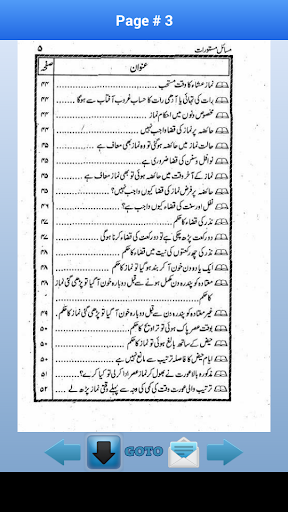 Page # 3
مسائل مستورات ۵
عنوان صفحہ
نماز عشاء کا وقت مستحب ۴۳
رات کی تہائی یا آدھی رات کا حساب غروب آفتاب سے ہوگا ۴۴
مخصوص دنوں میں احکام نماز ۴۴
حائضہ پر نماز کی قضا واجب نہیں ۴۴
حالت نماز میں حائضہ ہوگئی تو وہ نماز بھی معاف ہے
نوافل وسنن کی قضا ضروری ہے
نماز کے آخر وقت میں حائضہ ہوئی تو بھی نماز معاف ہے
حائضہ پر فرض نماز کی قضاء کیوں واجب نہیں؟
نفل اور سنت کی قضاء کیوں واجب ہے؟
نذر کی قضاء کا حکم
دو رکعت پڑھ چکی ہے تو دو رکعت کی قضاء کرنا ہوگی
نذر کی چھ رکعتوں کی نیت میں قضاء کا حکم
ایک یا دو دن خون آ کر بند ہو گیا تو نماز کا حکم
معتادہ کو چند دن مکمل ہونے سے قبل دوبارہ خون آ گیا تو پڑھی گئی نماز
کا حکم
غیر معتادہ کو چند دن سے قبل دوبارہ خون آ گیا تو پڑھی گئی نماز کا حکم
بوقت عصر پاک ہوئی تو تراویح کا حکم ۵۰
حیض کے ساتھ بالغ ہوئی تو نماز کا حکم ۵۰
ایام حیض کا فاصلہ ترتیب سے مانع نہیں ہے ۵۰
مذکورہ بالا عورت نے بھول کر نماز عصر ادا کر لی تو کیا کرے؟ ۵۱
ترتیب والی عورت وقت کی کمی کی وجہ سے پہلے وقتی نماز پڑھ لے ۵۲
GOTO